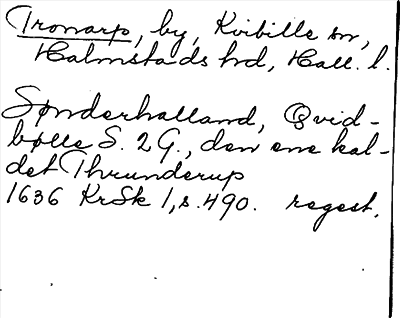 Tronarp, by, Kvibille sn,
Halmstads hd, Hall. l.
Sønderhalland, Qvid-
bølle S. 2 G., den ene kal-
det Thrunderup
1636 KrSk 1, s. 490. regest.